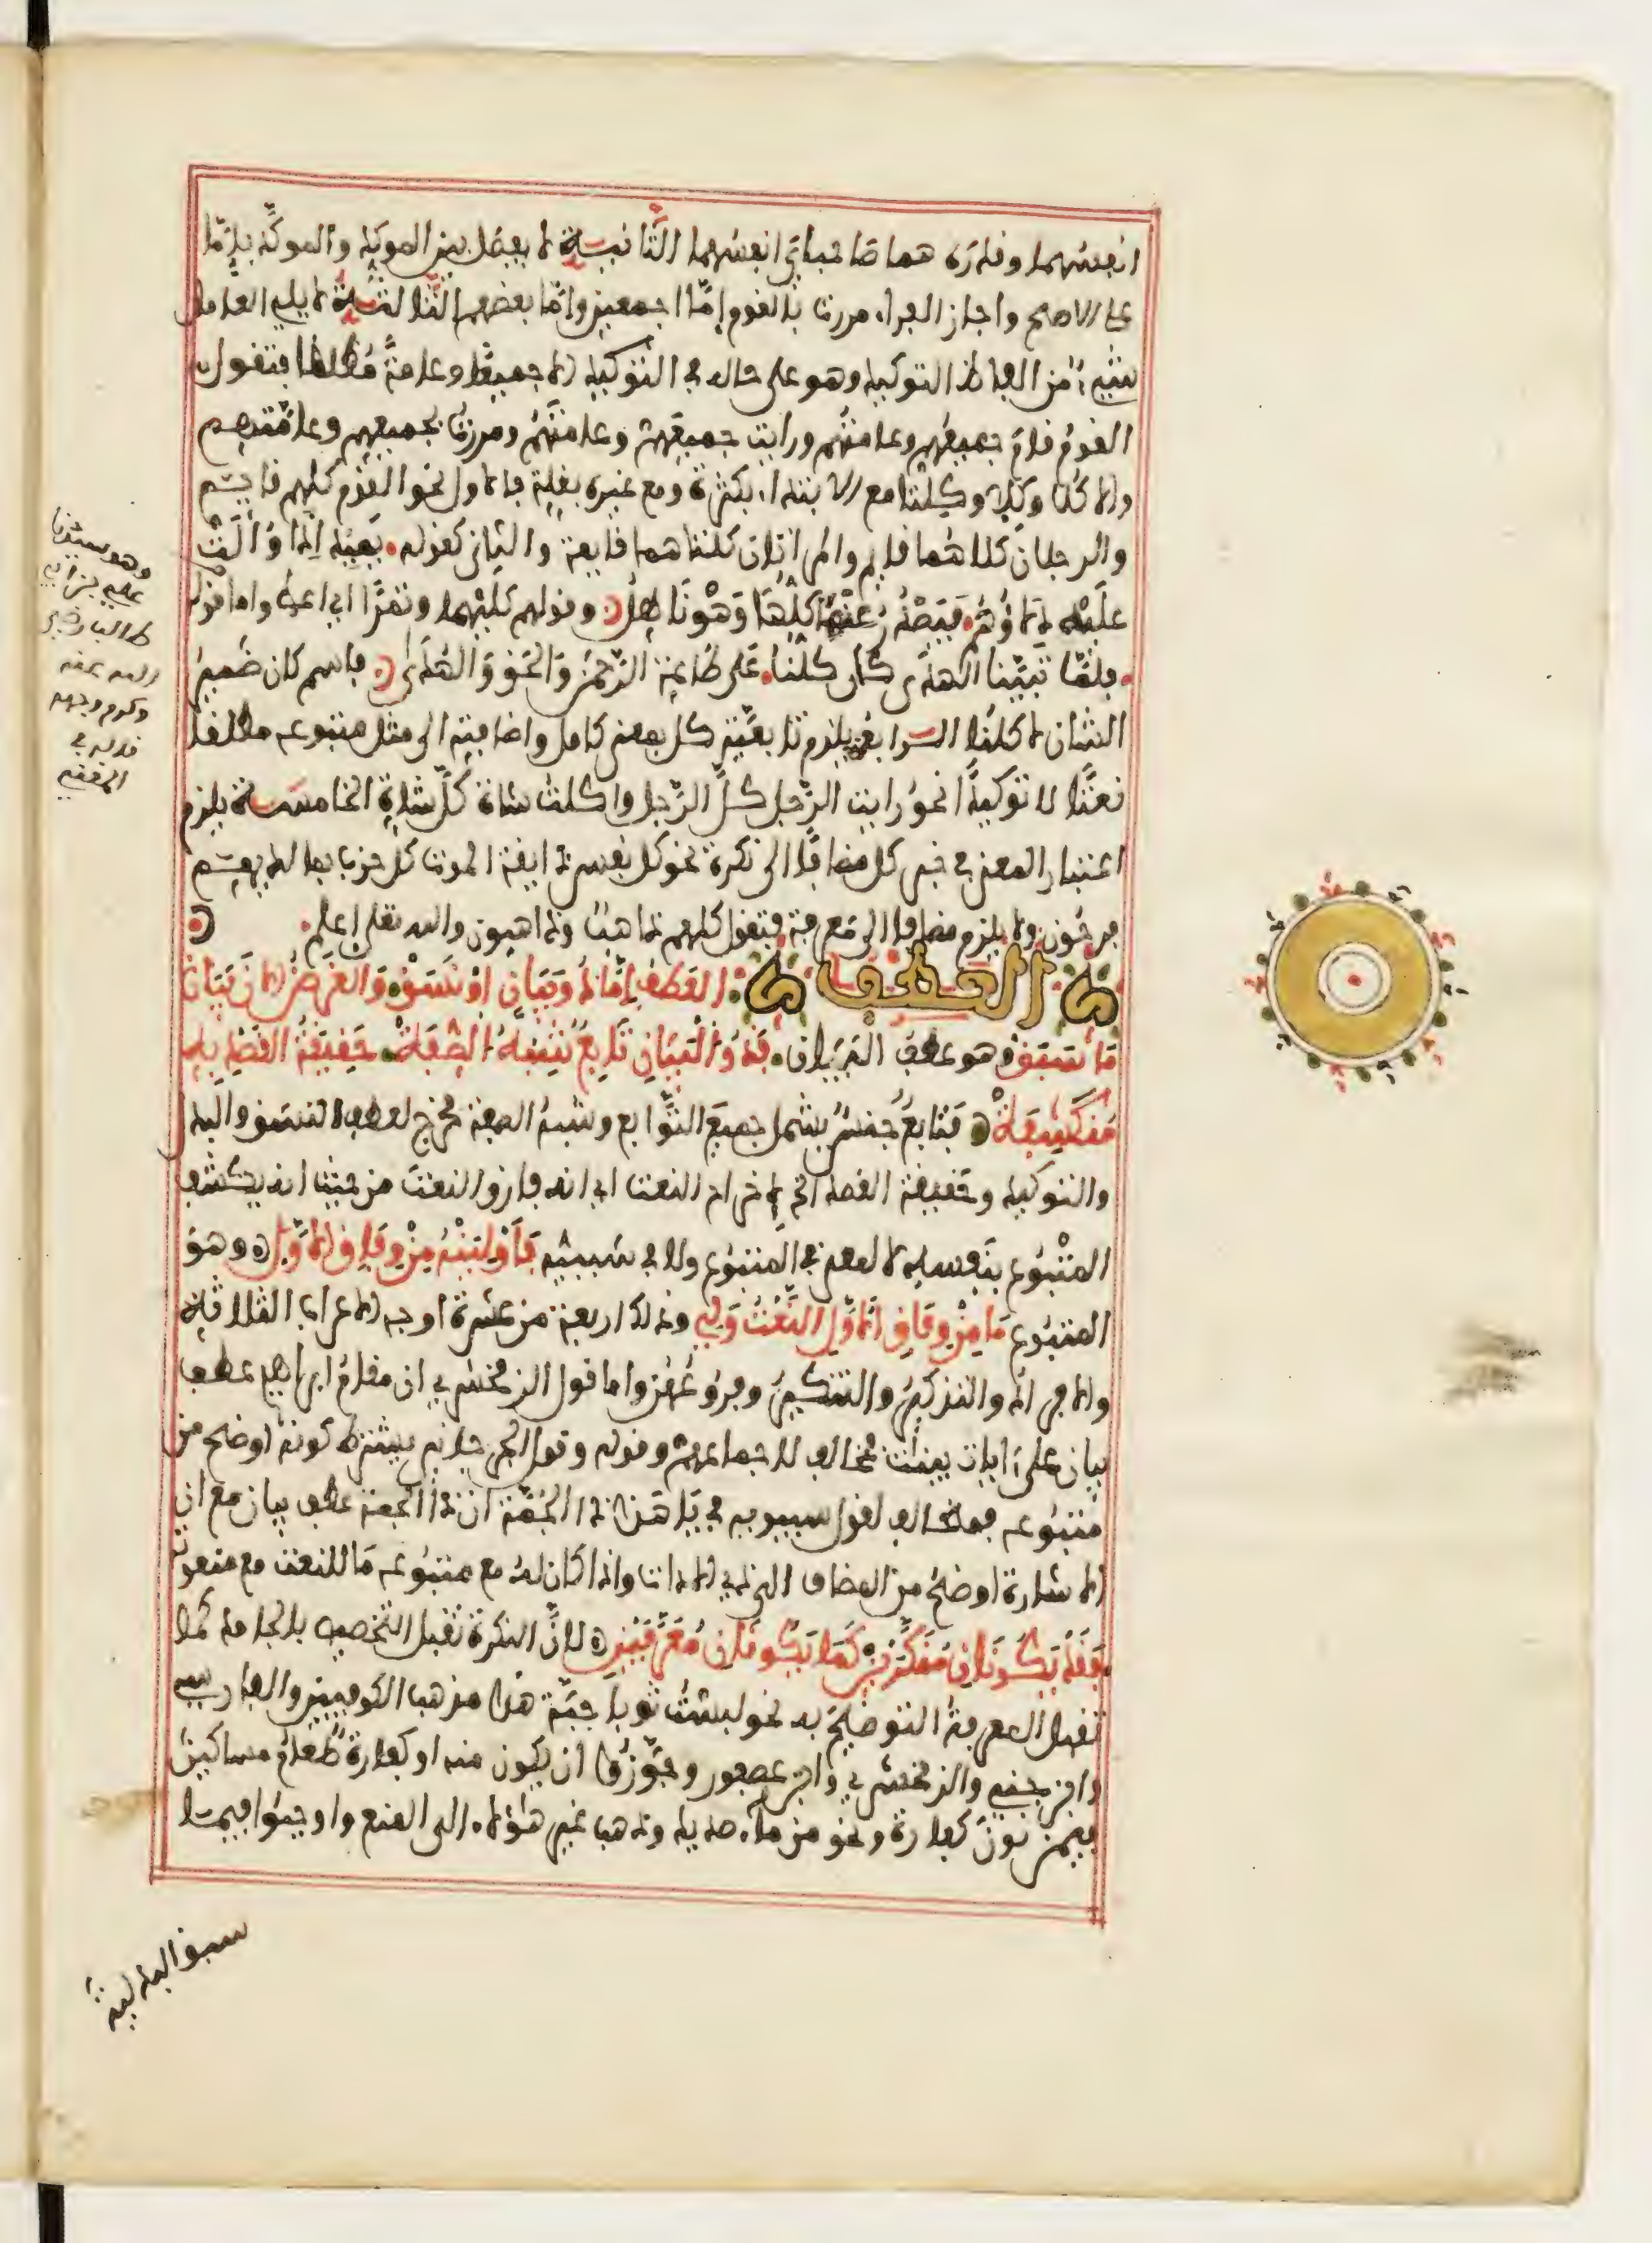 انفسهما وقلا ره هما صاحباتى انفسهما الثانية لا يفصل بين الموكد والموكِّد بإمّا
على الاصح واجاز الفراء مررت بالقوم إمّا اجمعين وإمّا بعضهم الثالثة لا يلى العامل
شيء من الفاظ التوكيد وهو على حاله في التوكيد الا جميعًا وعامةً مطلقا فتقول
القومُ قام جميعُهم وعامتُهم ورايت جميعَهم وعامتَهم ومررت بجميعِهم وعامّتِهم
والا كلا وكِلا وكِلتا مع الابتداء بكثرة ومع غيره بقلة فالاول نحو القومُ كلُّهم قايم
والرجلان كلاهما قايم والمراتان كلتاهما قايمة والثاني كقوله يَمِيدُ إذا وَالَتْ
عليْه دِلَاؤُهُم فَيَصْدُرُ عَنْهَا كلُّها وَهْوَ نَاهِلُ وقولهم كليهما وتمرًا اى اعطني واما قوله
فلمّا تبيّنا الهدى كان كلُّنا على طاعة الرحمن والحق والهدى فاسم كان ضميرُ
الشان لا كلنا الرابعة يلزم تابعيّة كل بمعنى كامل واضافته الى مثل متبوعه مطلقا
نعتًا لا توكيدًا نحوُ رايت الرجل كلَّ الرّجل واكلت شاة كلَّ شاةٍ الخامسة يلزم
اعتبار المعنى في خبر كل مضافًا الى نكرة نحو كل نفس ذايقة الموت كل حزب بما لديهم
فرحون ولا يلزم مضافا الى معرفة فتقول كلهم ذاهبٌ وذاهبون والله تعلى اعلم
العطف العَطفُ إمّا ذُو بَيَانٍ أوْ نَسَقْ وَالغَرَضُ الآنَ بَيَانُ
مَا سَبَقْ وهو عطف البيان فَذُو الْبَيَانِ تَابِعٌ شِبْهُ الصِّفَهْ حَقِيقَةُ القَصْدِ بِهِ
مُنْكَشِفَهْ فتابعٌ جنسٌ يشمل جميع التّوابع وشبهُ الصفة مخرج لعطف النسق والبدل
والتوكيد وحقيقة القصد الخ لإخراج النعت اى انه فارق النعت من حيث انه يكشف
المتْبُوع بنَفسه لا لمعنى في المتبوع ولا في سببيه فَأَوْلِيَنْهُ مِنْ وِفَاقِ الأَوَّلِ وهو
المتبوع مَا مِنْ وِفَاقِ الأَوَّلِ النَّعْتُ وَلِي وذلك اربعة من عشرة اوجه الاعراب الثلاثة
والافراد والتذكير والتنكير وفروعهن واما قول الزمخشري ان مقام ابرهيم عطف
بيان على ءايات بينات مخالف لاجماعهم وقوله وقول الجرجاني يشترط كونه اوضح من
متبوعه فمخالف لقول سيبويه في يا هذا ذا الجُمّة ان ذا الجمة عطف بيان مع ان
الاشارة اوضح من المضاف الى ذي الاداة واذا كان له مع متبوعه مَا للنعت مع منعوته
فَقَدْ يَكُونَانِ مُنَكَّرَيْنِ كَمَا يَكُونَانِ مُعَرَّفَيْنِ لانّ النكرة تقبل التخصيص بالجامد كما
تقبل المعرفة التوضيح به نحو لبست ثوبا جبّة هذا مذهب الكوفيين والفارسي
وابن جني والزمخشري وابن عصفور وجوّزوا ان يكون منه او كفارةٌ طعامُ مساكين
فيمن نون كفارة ونحو من ماء صديد وذهب غير هؤلاء الى المنع واوجبوا فيما
وهو سيدنا
على بن ابي
طالب رضي
الله عنه
وكرم وجهه
قاله في
سبق البدلية